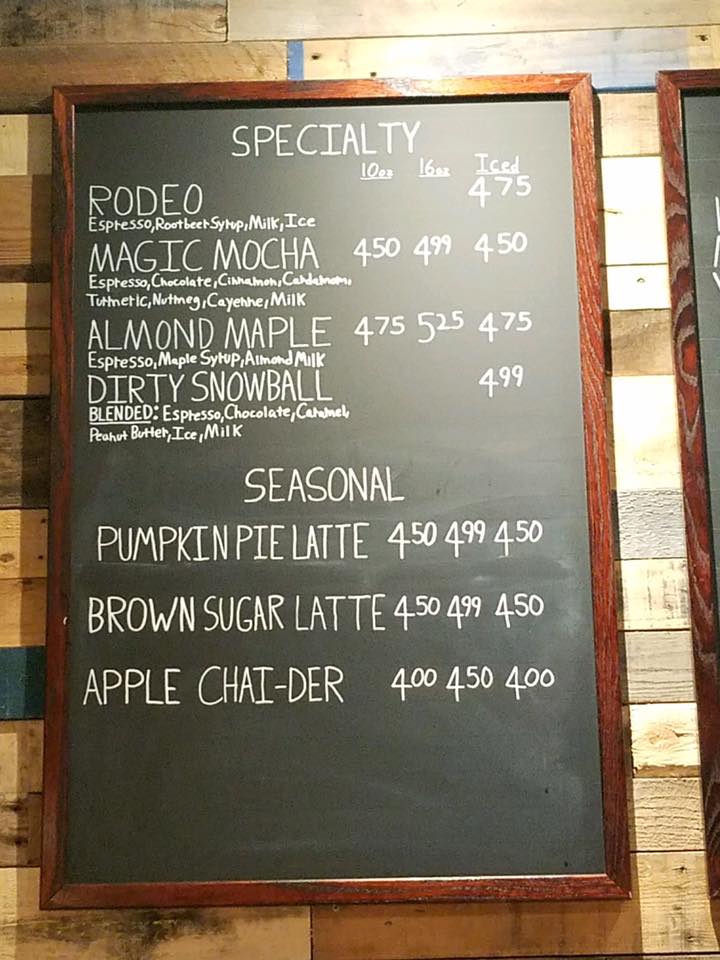 SPECIALTY
10oz 16oz Iced
RODEO 4.75
Espresso, Rootbeer Syrup, Milk, Ice
MAGIC MOCHA 450 499 450
Espresso, Chocolate, Cinnamon, Cardamom,
Turmeric, Nutmeg, Cayenne, Milk
ALMOND MAPLE 475 525 475
Espresso, Maple Syrup, Almond Milk
DIRTY SNOWBALL 499
BLENDED: Espresso, Chocolate, Caramel,
Peanut Butter, Ice, Milk
SEASONAL
PUMPKIN PIE LATTE 450 499 450
BROWN SUGAR LATTE 450 499 450
APPLE CHAI-DER 400 450 400